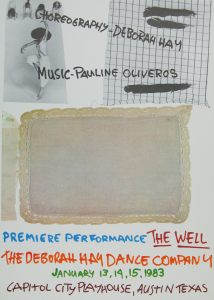 CHOREOGRAPHY-DEBORAH HAY
MUSIC-PAULINE OLIVEROS
PREMIERE PERFORMANCE THE WELL
THE DEBORAH HAY DANCE COMPANY
JANUARY 13, 14, 15, 1983
CAPITOL CITY PLAYHOUSE, AUSTIN TEXAS